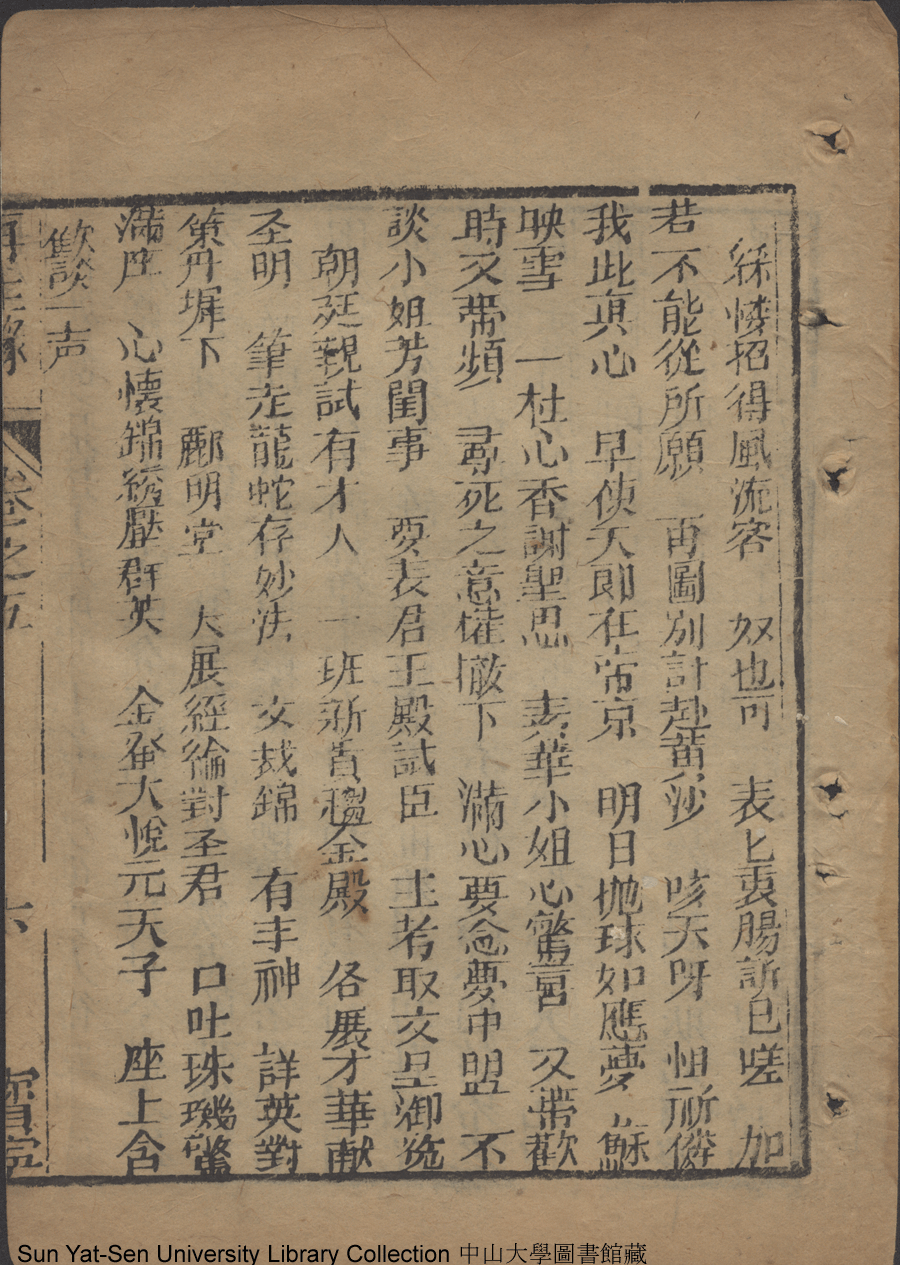 綵樓招得風流客　奴也可　表匕衷腸訴巳嗟　加
若不能從所願　再圖別計赴黃沙　咳天呀　怛所憐
我此真心　早使天郎在帝京　明日拋球如應夢　穌
映雪　一杜心香謝聖恩　素華小姐心驚喜　又帶歡
時又帶頻　尋死之意權撇下　滿心要念夢中盟　不
談小姐芳閨事　要表君王殿試臣　主考取文呈御覽
朝廷親試有才人　一班新貴趨金殿　各展才華献
圣明　筆走龍蛇存妙法　文裁錦　有丰神　詳英對
策丹墀下　酈明堂　大展經綸對圣君　口吐珠璣驚
滿座　心懷錦綉壓群英　金衮大悅元天子　座上含
歡談一声
再生緣　卷之五　六